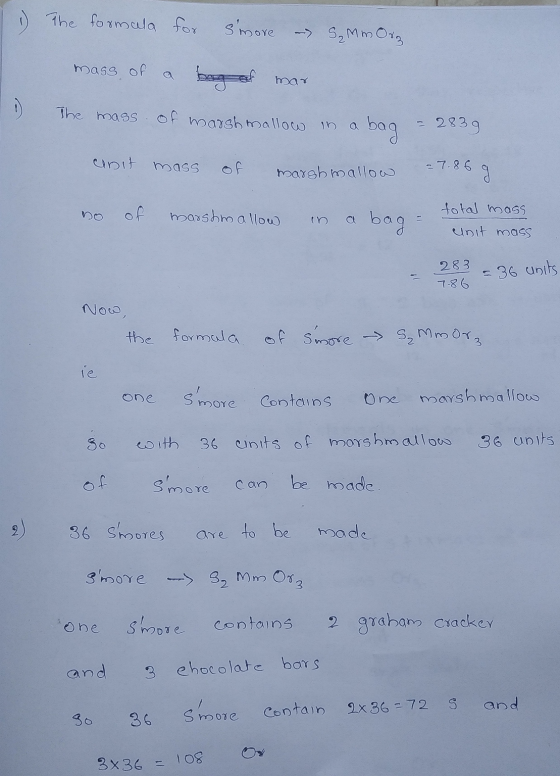 1) The formula for s'more → S₂MmOr₃
mass of a bag of mar
1) The mass of marshmallow in a bag = 283g
unit mass of marshmallow = 7.86 g
no of marshmallow in a bag = total mass / unit mass
= 283 / 7.86 = 36 units
Now,
the formula of s'more → S₂MmOr₃
ie
one s'more contains one marshmallow
so with 36 units of marshmallow 36 units
of s'more can be made
2) 36 s'mores are to be made
s'more → S₂MmOr₃
one s'more contains 2 graham cracker
and 3 chocolate bars
so 36 s'more contain 2x36=72 S and
3x36 = 108 Or